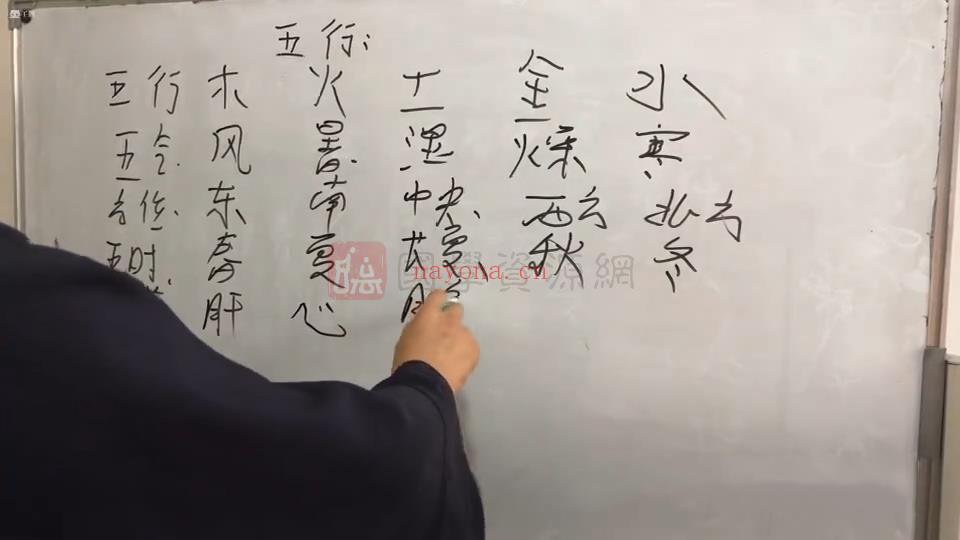 五行:
五行 木 火 土 金 水
五令. 风 暑. 湿 燥 寒
方位、 东 南 中央、 西方 北方
五时. 春 夏 长夏、 秋 冬
肝 心
國學資源網
nayona.cn